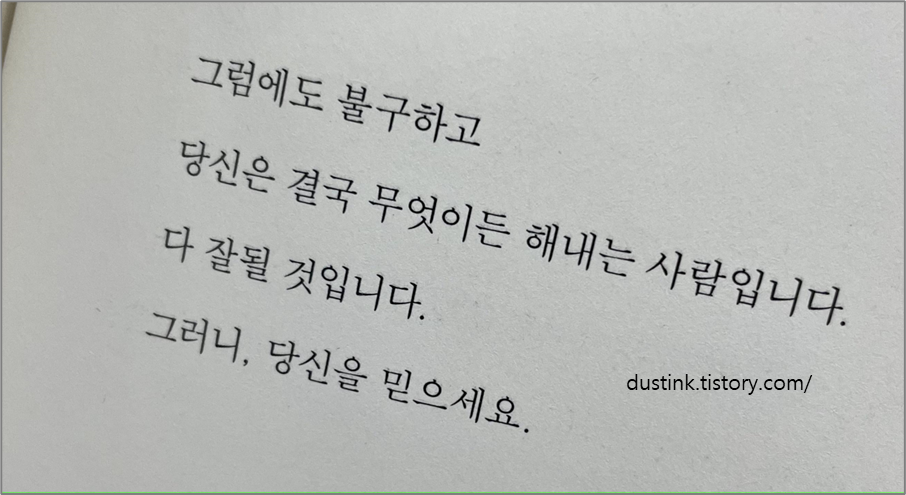 그럼에도 불구하고
당신은 결국 무엇이든 해내는 사람입니다.
다 잘될 것입니다.
그러니, 당신을 믿으세요.
dustink.tistory.com/